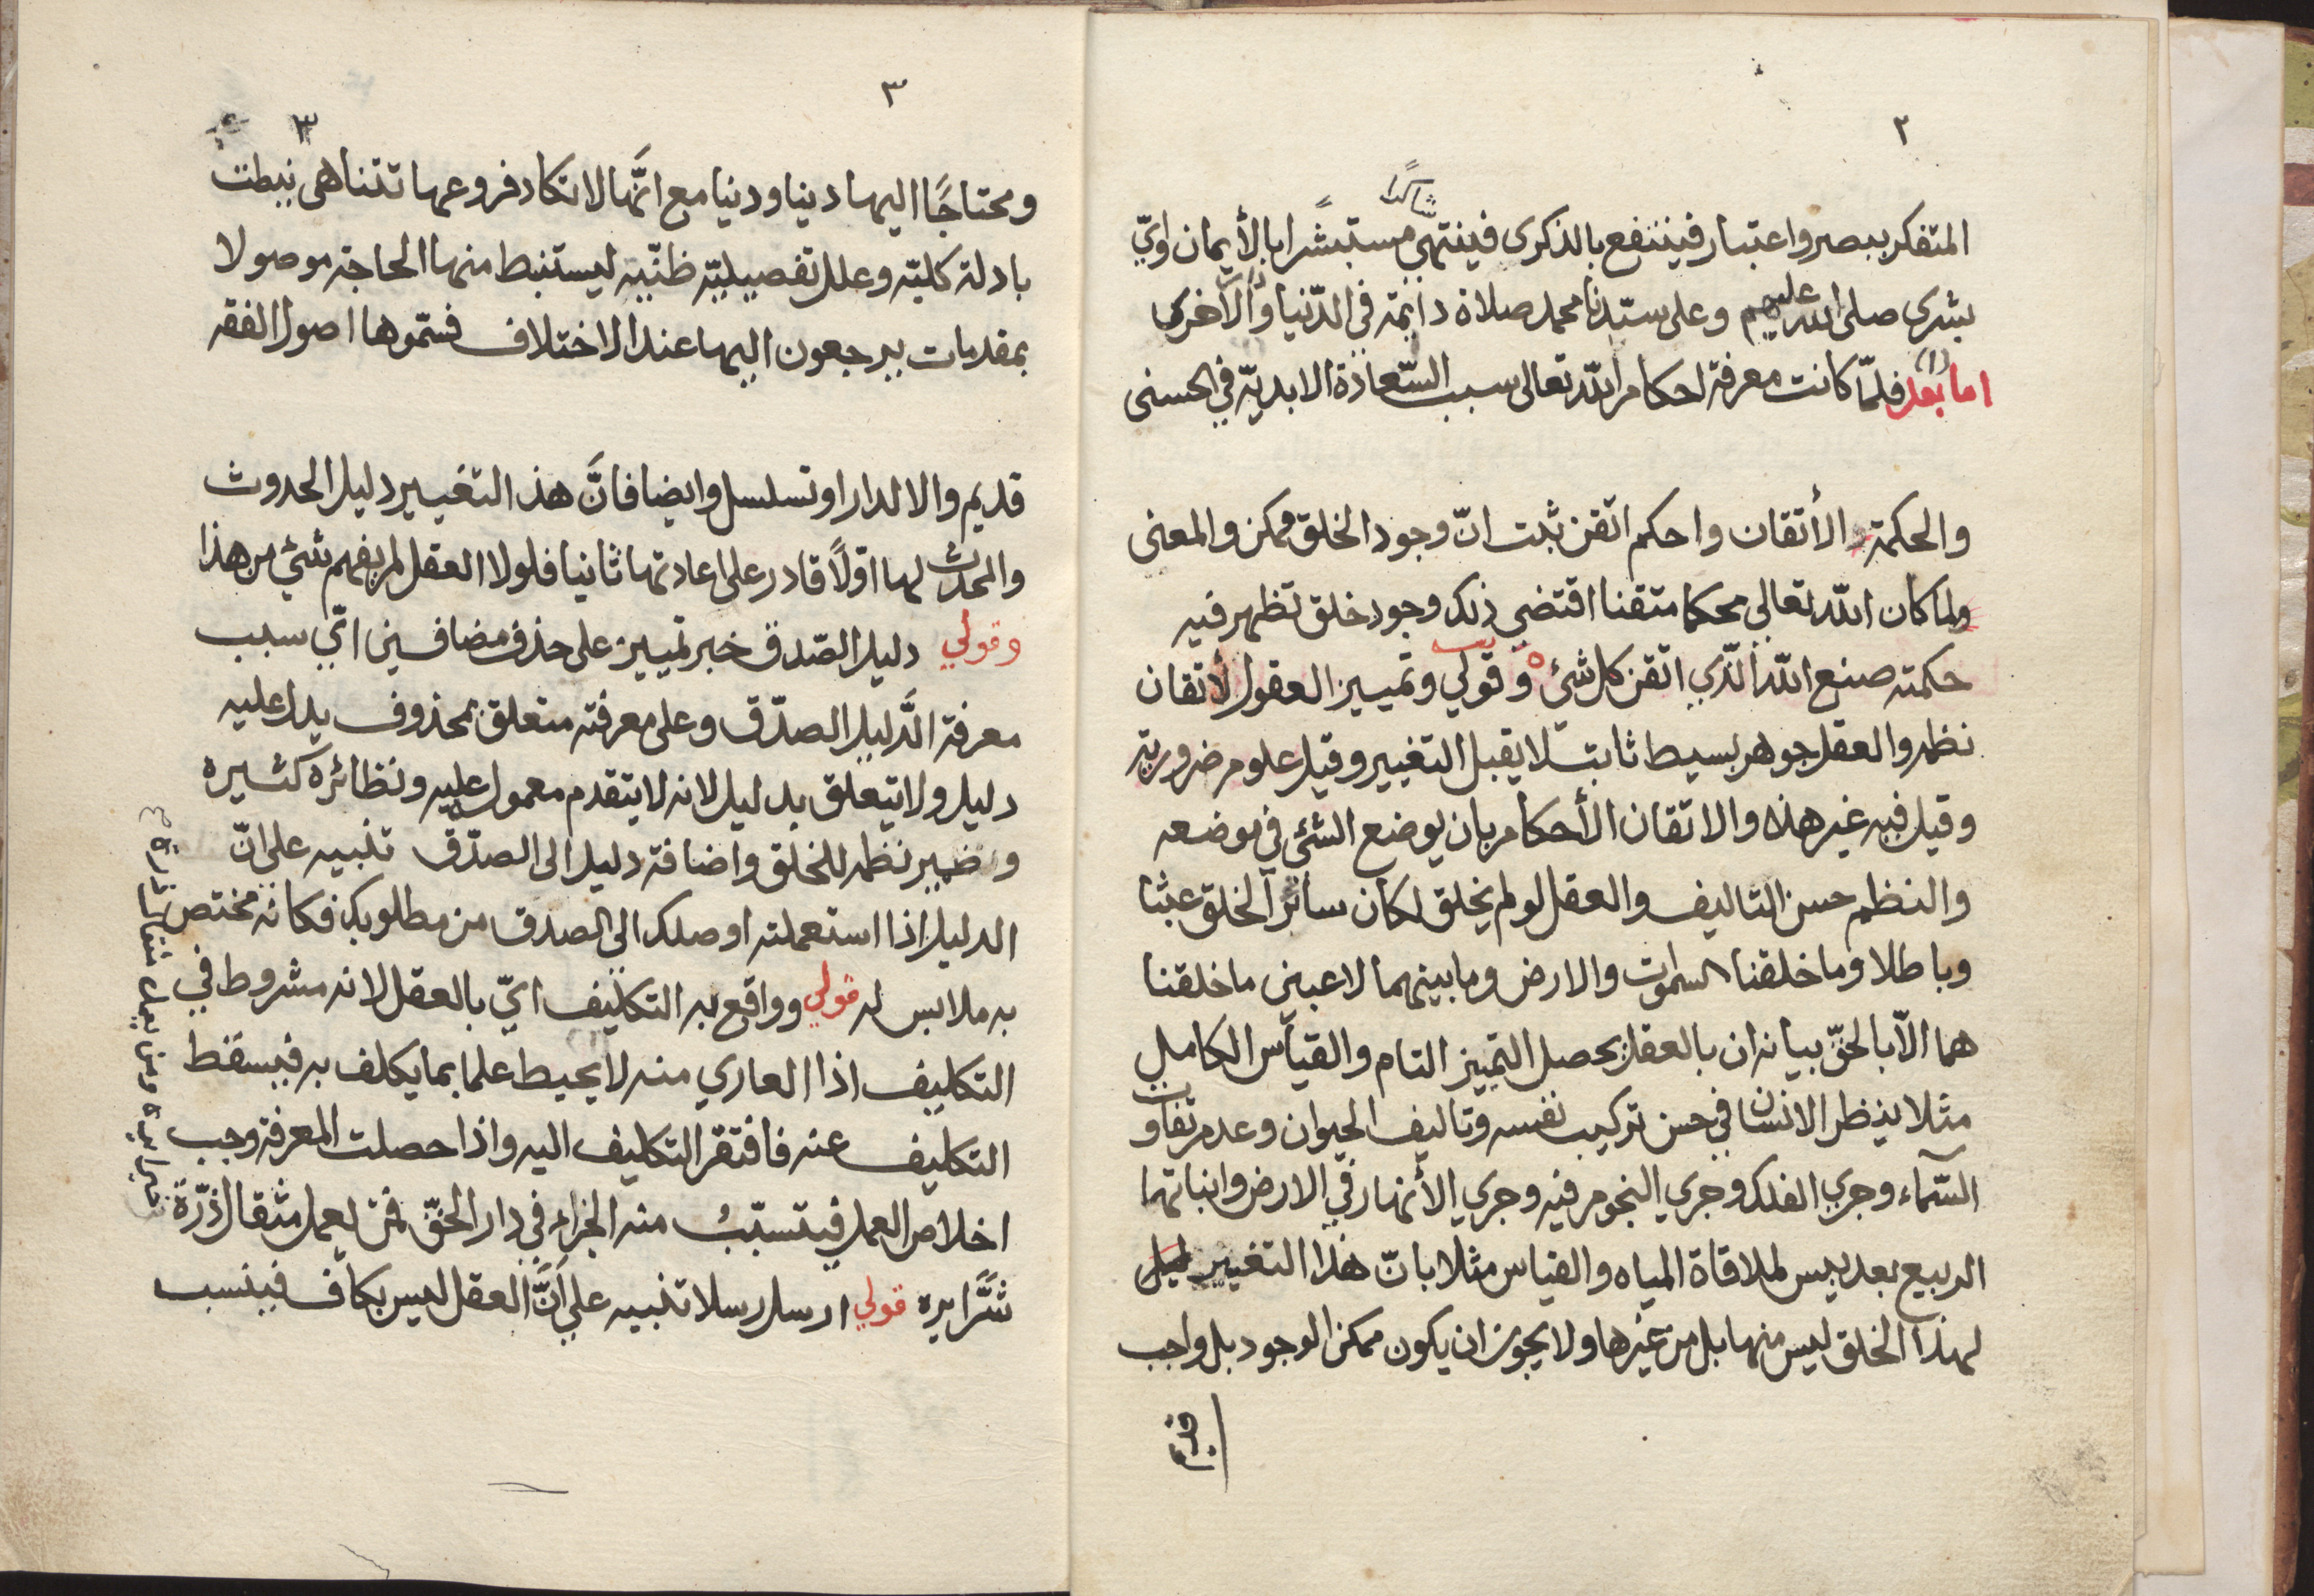 ٢
شاكرا
المتفكر ببصر واعتبار فينتفع بالذكرى فينتهي مستبشرا بالأيمان وايّ
بشرى صلى الله عليهم وعلى سيّدنا محمد صلاة دائمة في الدّنيا والآخرى
اما بعد فلمّا كانت معرفة احكام الله تعالى سبب السّعادة الابديّة في الحسنى
والحكمة الأتقان واحكم اتقن ثبت انّ وجود الخلق ممكن والمعنى
ولما كان الله تعالى محكما متقنا اقتضى ذلك وجود خلق تظهر فيه
حكمته صنع الله الّذي اتقن كل شئ وقولي وتمييز العقول لأتقان
نظمه والعقل جوهر بسيط ثابت لا يقبل التغيير وقيل علوم ضرورية
وقيل فيه غير هذه والاتقان الأحكام بان يوضع الشئ في موضعه
والنظم حسن التاليف والعقل لو لم يخلق لكان سائر الخلق عبثا
وباطلا وما خلقنا السموات والارض وما بينهما لاعبين ما خلقنا
هما الّا بالحقّ بيانه ان بالعقل يحصل التمييز التام والقياس الكامل
مثلا ينظر الانسان في حسن تركيب نفسه وتاليف الحيوان وعدم تفاوت
السّماء وجري الفلك وجري النجوم فيه وجري الأنهار في الارض وانباتها
الربيع بعد يبس لملاقاة المياه والقياس مثلا بانّ هذا التغيير
لهذا الخلق ليس منها بل من غيرها ولا يجوز ان يكون ممكن الوجود بل واجب
قديم
٣
٣
ومحتاجًا اليها دينا ودنيا مع انَّها لا تكاد فروعها تتناهى نيطت
بادلة كليّة وعلل تفصيليّة ظنّيّة ليستنبط منها الحاجة موصولا
بمقدمات يرجعون اليها عند الاختلاف فسمّوها اصول الفقه
قديم والا لدار او تسلسل وايضا فانَّ هذ التغيير دليل الحدوث
والمحدث لها اوّلًا قادر على اعادتها ثانيا فلولا العقل لم يفهم شئي من هذا
وقولي دليل الصّدق خبر تمييز على حذف مضافين ايّ سبب
معرفة الدَّليل الصدّق وعلى معرفته متعلق بمحذوف يدل عليه
دليل ولا يتعلق بدليل لانه لا يتقدم معموله عليه ونظائره كثيره
وضمير نظمه للخلق واضافة دليل الى الصدّق تنبيه على انّ
الدليل اذا استعملته اوصلك الى الصدق من مطلوبك فكانه مختص
به ملابس له قولي وواقع به التكليف ايّ بالعقل لانه مشروط في
التكليف اذا العاري منه لا يحيط علما بما يكلف به فيسقط
التكليف عنه فافتقر التكليف اليه واذا حصلت المعرفة وجب
اخلاص العمل فيتسبّب منه الجزاء في دار الحقّ فمن يعمل مثقال ذرّة
خيرا يره ومن يعمل مثقال ذرة
شرًّا يره قولي ارسل رسلا تنبيه علي انَّ العقل ليس بكاف فينسب